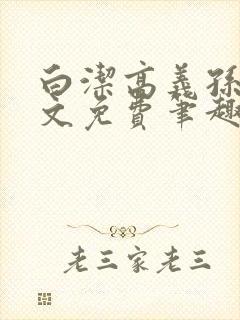 白潔高義孫
文免費筆趣
老三家老三